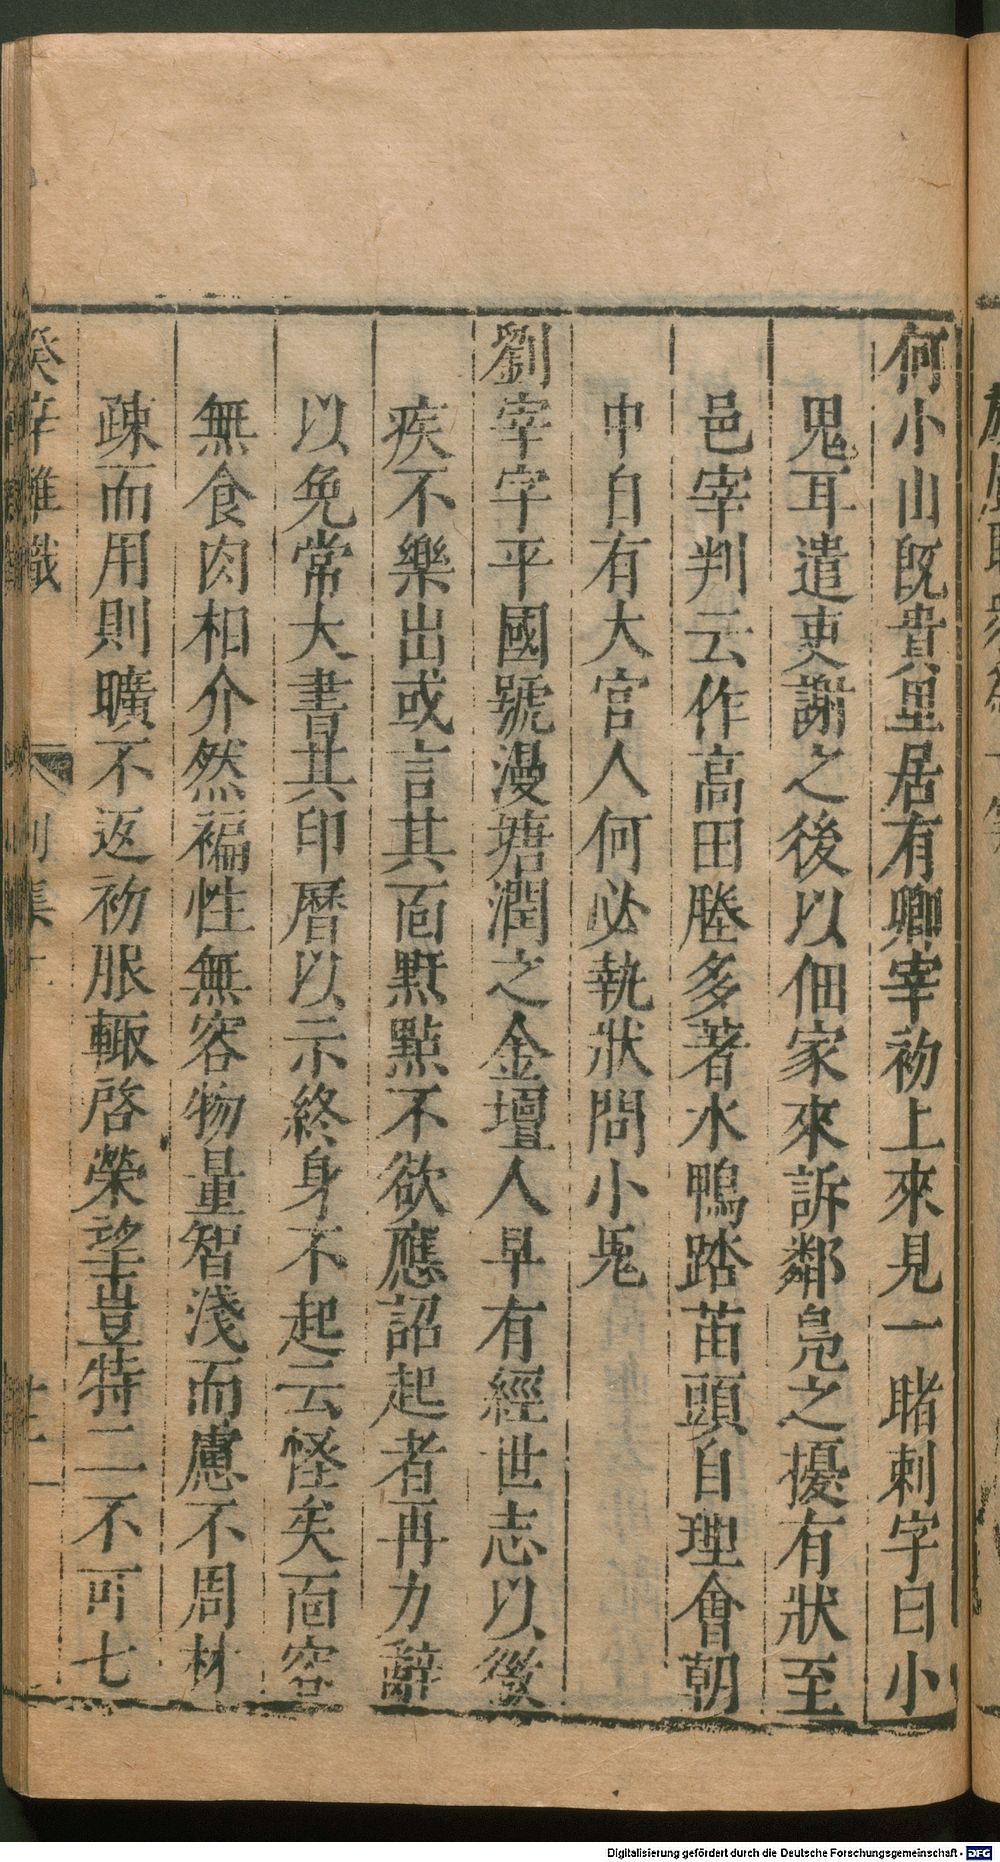 何小山旣貴里居有鄉宰初上來見一睹刺字曰小
鬼耳遣吏謝之後以佃家來訴鄰鳧之擾有狀至
邑宰判云作高田塍多著水鴨踏苗頭自理會朝
中自有大官人何必執狀問小鬼
劉宰字平國號漫塘潤之金壇人早有經世志以微
疾不樂出或言其面䵝點不欲應詔起者再力辭
以免常大書其印曆以示終身不起云怪矣面容
無食肉相介然褊性無容物量智淺而慮不周材
疎而用則曠不返初服輙啓榮望豈特二不可七
癸辛雜識 別集上
Digitalisierung gefördert durch die Deutsche Forschungsgemeinschaft - DFG